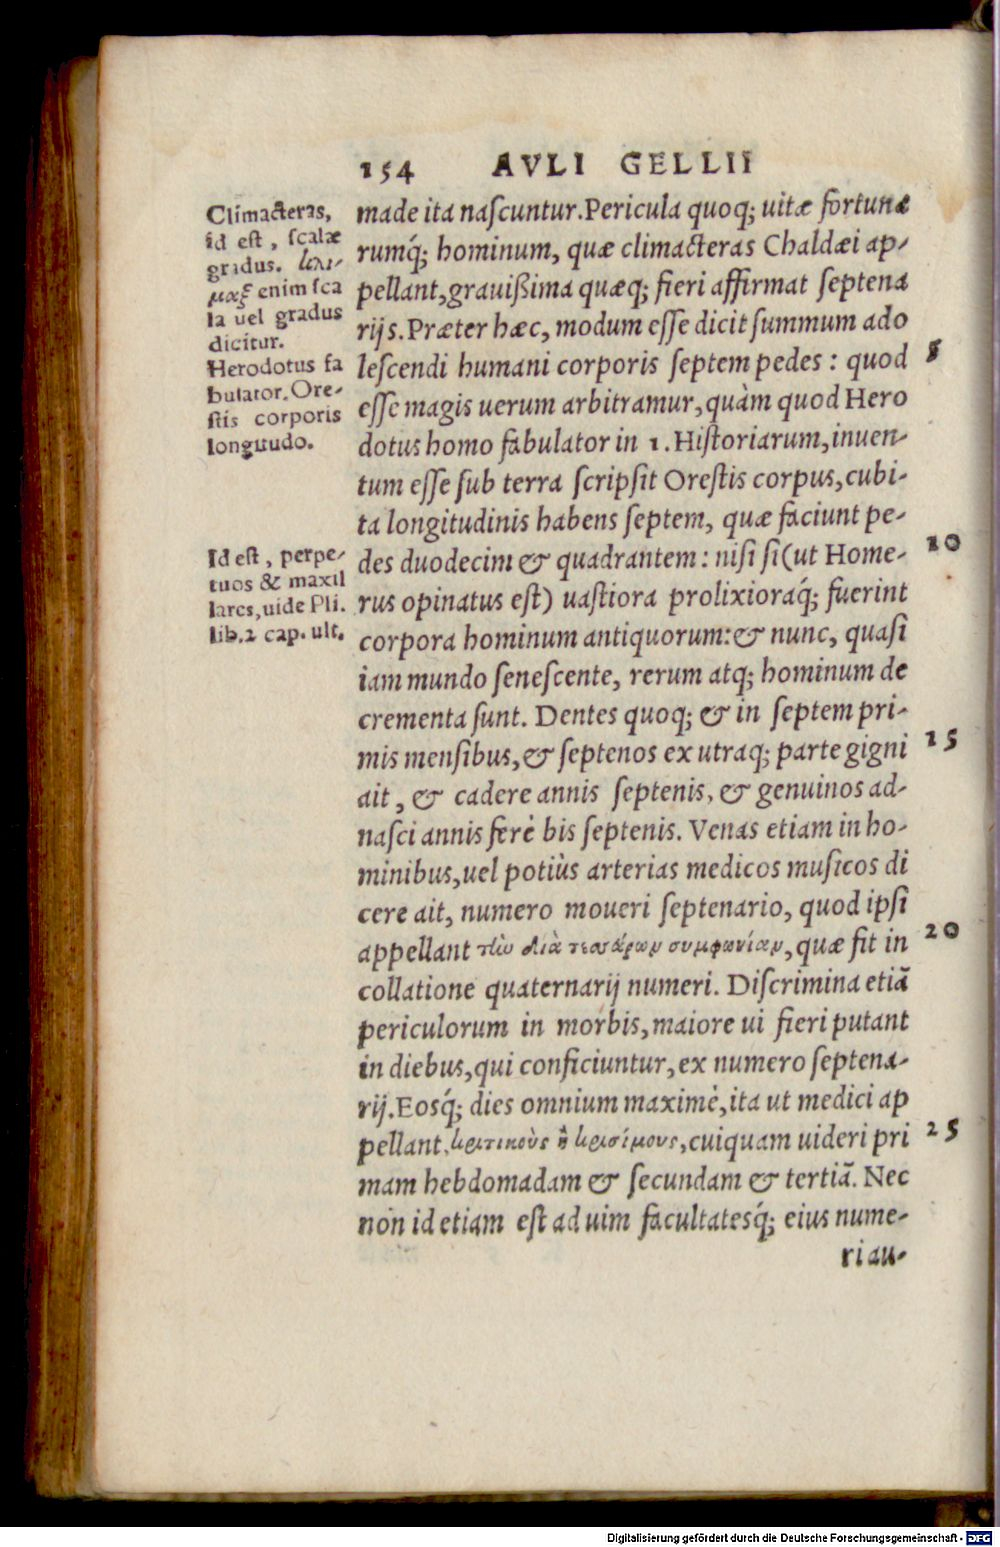 154 AVLI GELLII
Climacteras,
id est, scalæ
gradus. κλι-
μαξ enim sca
la uel gradus
dicitur.
Herodotus fa
bulator. Ore-
stis corporis
longitudo.
Id est, perpe-
tuos & maxil
lares, uide Pli.
lib.2 cap. ult.
made ita nascuntur. Pericula quoq; uitæ fortuna
rumq́; hominum, quæ climacteras Chaldæi ap-
pellant, grauißima quæq; fieri affirmat septena
rijs. Præter hæc, modum esse dicit summum ado
lescendi humani corporis septem pedes : quod 5
esse magis uerum arbitramur, quàm quod Hero
dotus homo fabulator in 1. Historiarum, inuen-
tum esse sub terra scripsit Orestis corpus, cubi-
ta longitudinis habens septem, quæ faciunt pe-
des duodecim & quadrantem : nisi si (ut Home- 10
rus opinatus est) uastiora prolixioraq́; fuerint
corpora hominum antiquorum: & nunc, quasi
iam mundo senescente, rerum atq; hominum de
crementa sunt. Dentes quoq; & in septem pri-
mis mensibus, & septenos ex utraq; parte gigni 15
ait, & cadere annis septenis, & genuinos ad-
nasci annis ferè bis septenis. Venas etiam in ho-
minibus, uel potiùs arterias medicos musicos di
cere ait, numero moueri septenario, quod ipsi
appellant τὴν διὰ τεσσάρων συμφωνίαν, quæ fit in 20
collatione quaternarij numeri. Discrimina etiā
periculorum in morbis, maiore ui fieri putant
in diebus, qui conficiuntur, ex numero septena-
rij. Eosq́; dies omnium maximè, ita ut medici ap
pellant, κριτικοὺς ἢ κρισίμους, cuiquam uideri pri 25
mam hebdomadam & secundam & tertiā. Nec
non id etiam est ad uim facultatesq́; eius nume-
ri au-
Digitalisierung gefördert durch die Deutsche Forschungsgemeinschaft - DFG